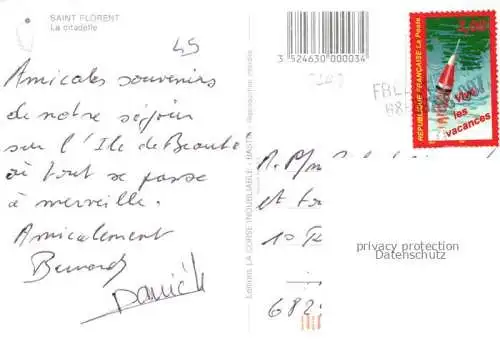 SAINT FLORENT
La citadelle
45
Amicales souvenirs
de notre séjour
sur l'Ile de Beauté
où tout se passe
à merveille.
Amicalement
Bernard
Danièle
Editions LA CORSE INOUBLIABLE - BASTIA Reproduction interdite
3 524630 000034
RÉPUBLIQUE FRANÇAISE La Poste
3,00F
Vive
les
vacances
et
10
privacy protection
Datenschutz
682